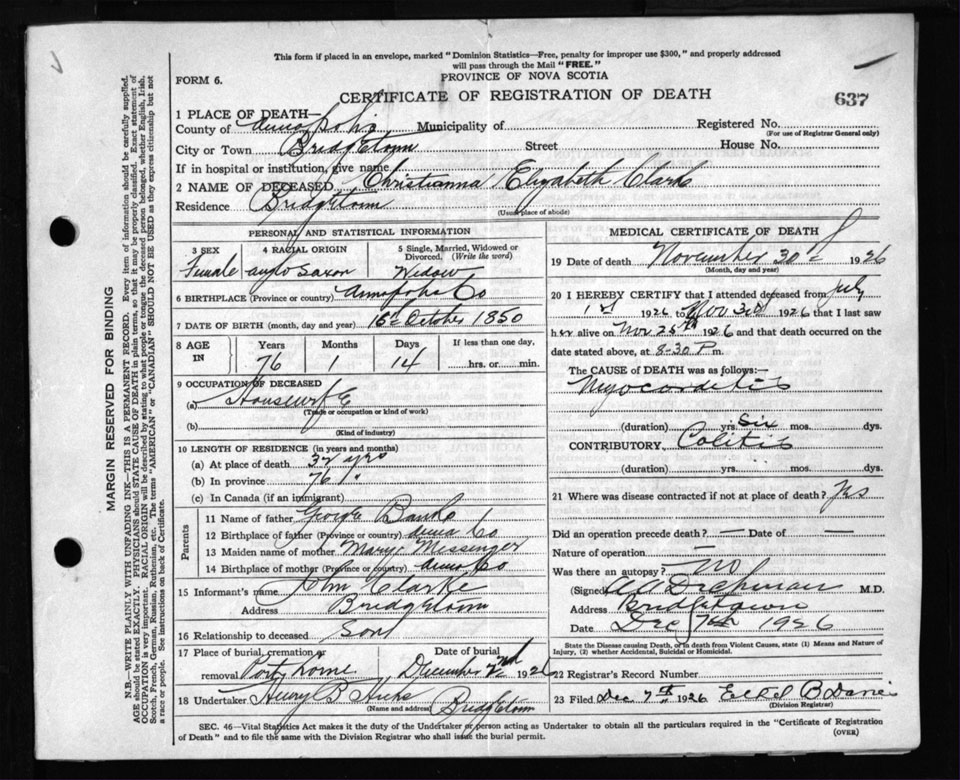 This form if placed in an envelope, marked "Dominion Statistics—Free, penalty for improper use $300," and properly addressed
will pass through the Mail "FREE."
FORM 6.
PROVINCE OF NOVA SCOTIA
CERTIFICATE OF REGISTRATION OF DEATH
637
1 PLACE OF DEATH—
County of Annapolis Municipality of Registered No.
(For use of Registrar General only)
City or Town Bridgetown Street House No.
If in hospital or institution, give name
2 NAME OF DECEASED Christianna Elizabeth Clark
Residence Bridgetown
(Usual place of abode)
PERSONAL AND STATISTICAL INFORMATION
3 SEX 4 RACIAL ORIGIN 5 Single, Married, Widowed or Divorced. (Write the word)
Female anglo Saxon Widow
6 BIRTHPLACE (Province or country) Annapolis Co
7 DATE OF BIRTH (month, day and year) 16th October 1850
8 AGE IN Years Months Days If less than one day,
76 1 14 hrs. or min.
9 OCCUPATION OF DECEASED
(a) Housewife
(Trade or occupation or kind of work)
(b)
(Kind of industry)
10 LENGTH OF RESIDENCE (in years and months)
(a) At place of death 32 yrs
(b) In province 76 "
(c) In Canada (if an immigrant)
Parents
11 Name of father George Banks
12 Birthplace of father (Province or country) Anna Co
13 Maiden name of mother Mary Messenger
14 Birthplace of mother (Province or country) Anna Co
15 Informant's name Clarke
Address Bridgetown
16 Relationship to deceased Son
17 Place of burial, cremation or removal Date of burial
Port Lorne December 2nd 1926
18 Undertaker Henry B Hicks Bridgetown
(Name and address)
MEDICAL CERTIFICATE OF DEATH
19 Date of death November 30th 1926
(Month, day and year)
20 I HEREBY CERTIFY that I attended deceased from July
1st 1926 to Nov 30th 1926 that I last saw
her alive on Nov 25th 1926 and that death occurred on the
date stated above, at 8-30 P. m.
The CAUSE OF DEATH was as follows:—
Myocarditis
(duration) yrs. six mos. dys.
CONTRIBUTORY Colitis
(duration) yrs. mos. dys.
21 Where was disease contracted if not at place of death? Yes
Did an operation precede death? — Date of
Nature of operation —
Was there an autopsy? no
(Signed) M.D.
Address Bridgetown
Date Dec 7th 1926
State the Disease causing Death, or in death from Violent Causes, state (1) Means and Nature of
Injury, (2) whether Accidental, Suicidal or Homicidal.
22 Registrar's Record Number
23 Filed Dec 7th 1926 Ethel B
(Division Registrar)
SEC. 46—Vital Statistics Act makes it the duty of the Undertaker or person acting as Undertaker to obtain all the particulars required in the "Certificate of Registration
of Death" and to file the same with the Division Registrar who shall issue the burial permit.
(OVER)
MARGIN RESERVED FOR BINDING
N.B.—WRITE PLAINLY WITH UNFADING INK—THIS IS A PERMANENT RECORD. Every item of information should be carefully supplied.
AGE should be stated EXACTLY. PHYSICIANS should STATE CAUSE OF DEATH in plain terms, so that it may be properly classified. Exact statement of
OCCUPATION is very important. RACIAL ORIGIN will be described by stating to what people or tongue the deceased person belonged, whether English, Irish,
Scotch, French, German, Russian, Ruthenian, etc. The terms "AMERICAN" or "CANADIAN" SHOULD NOT BE USED as they express citizenship but not
a race or people. See instructions on back of Certificate.